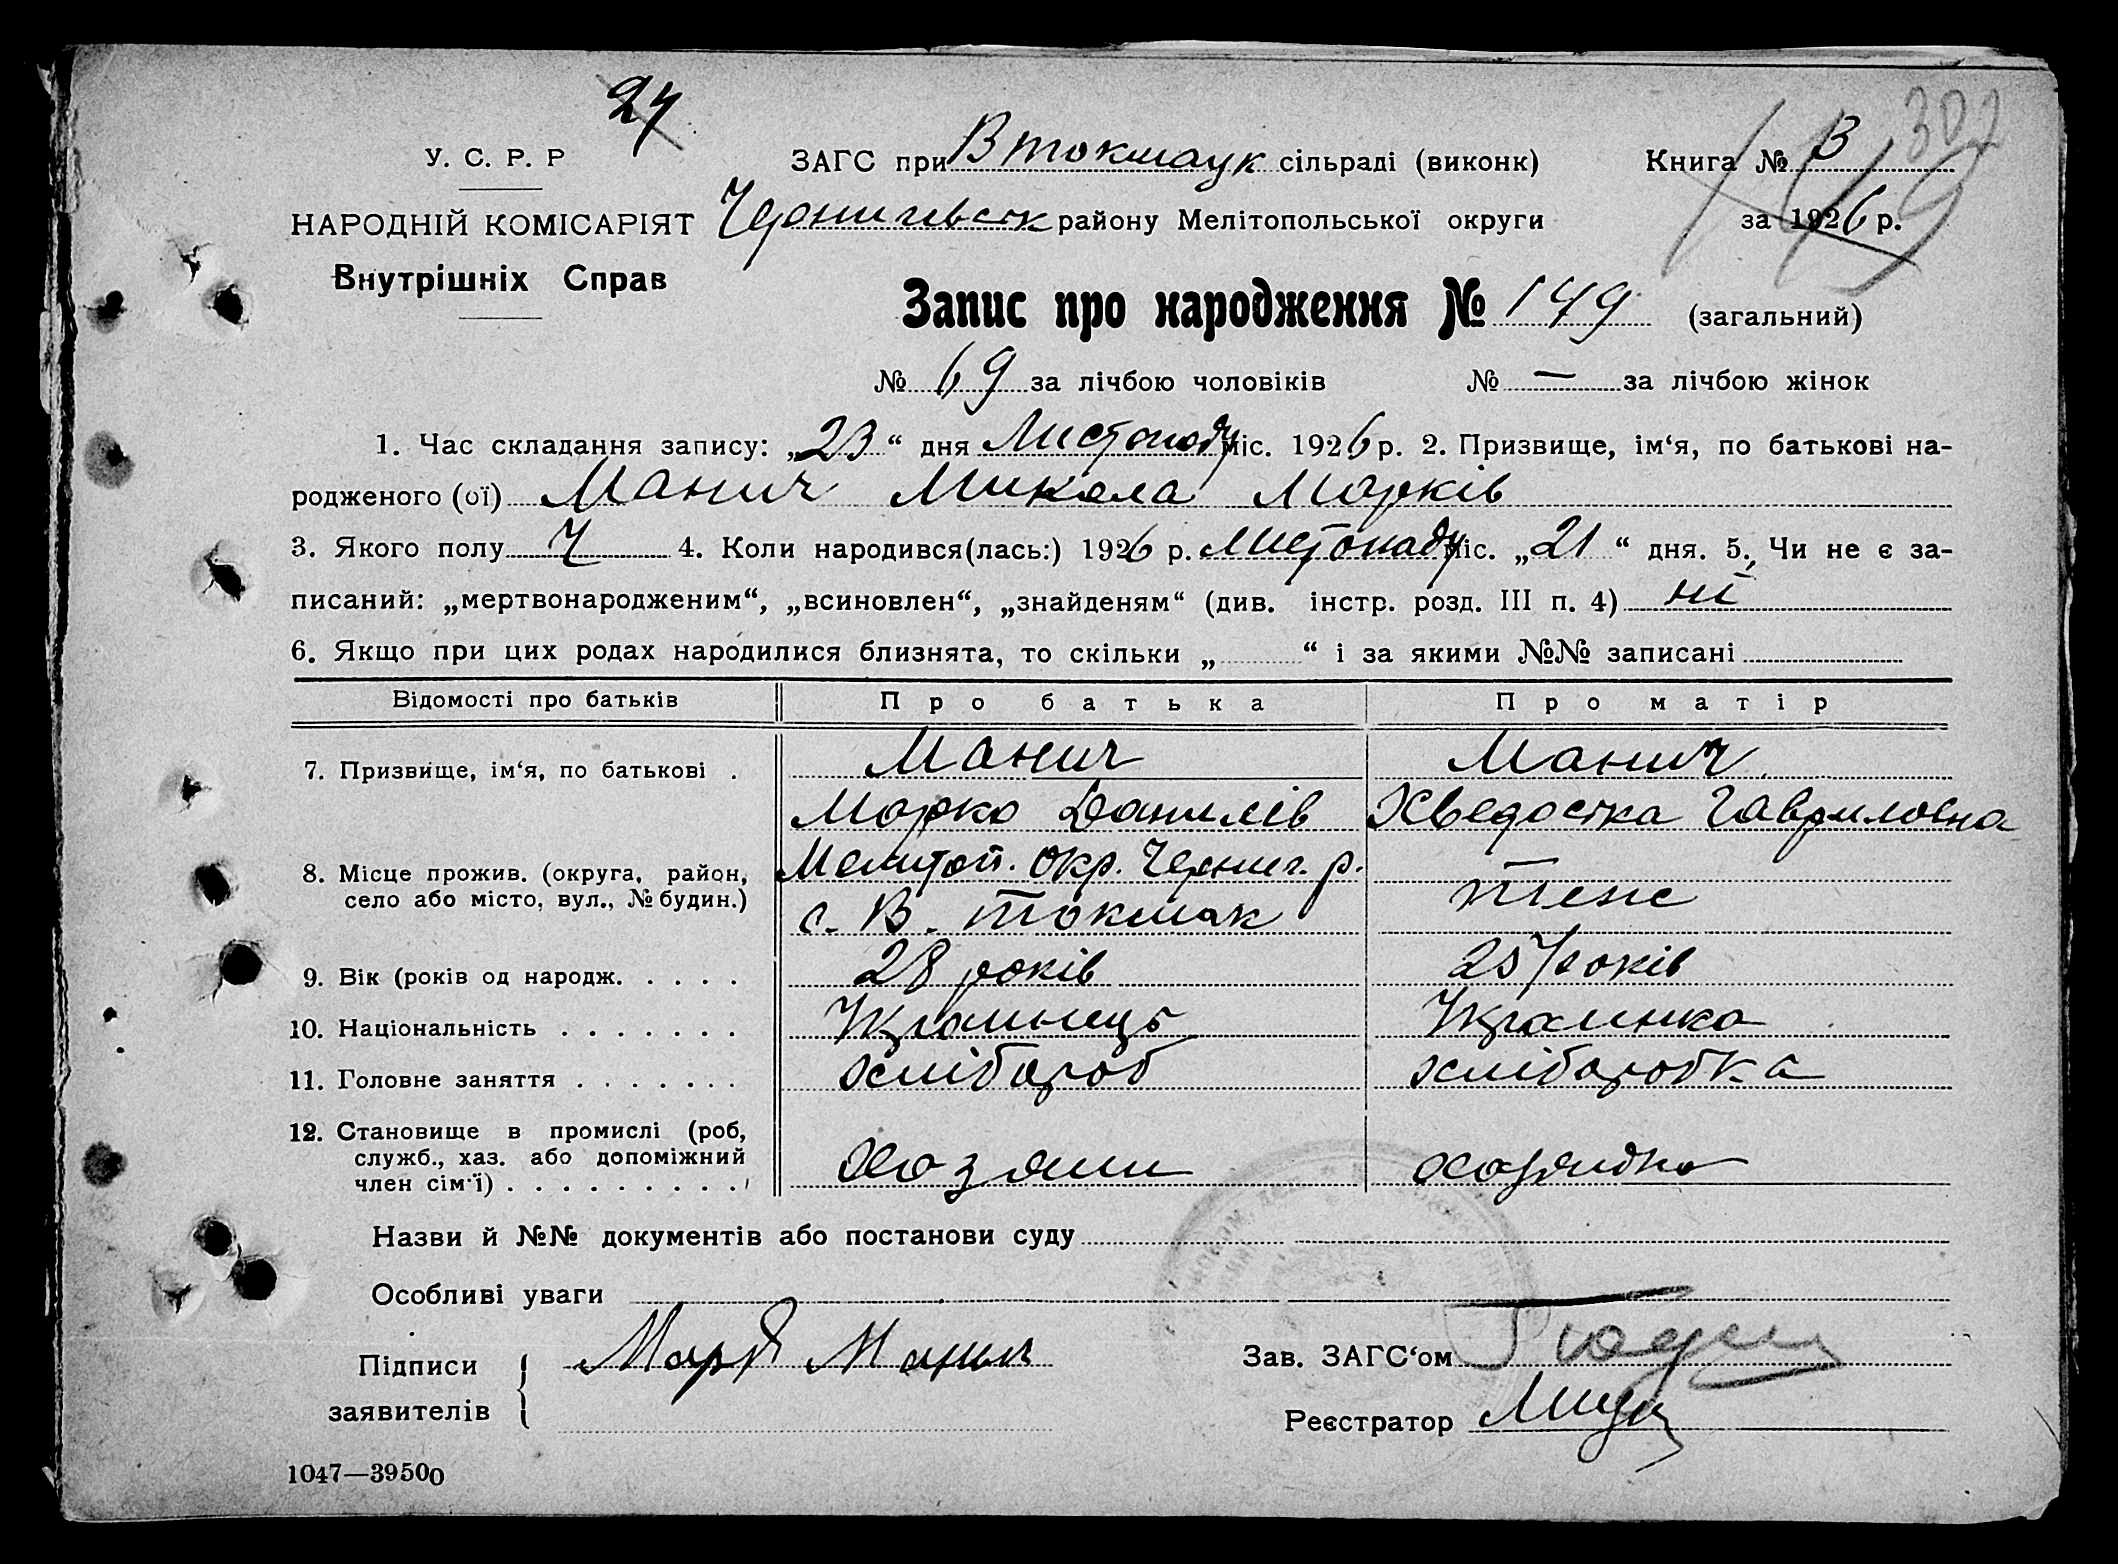 24
302
119
У. С. Р. Р
ЗАГС при В токмацк сільраді (виконк)
Книга № 3
НАРОДНІЙ КОМІСАРІЯТ
Чернигівськ району Мелітопольської округи
за 1926 р.
Внутрішніх Справ
Запис про народження № 149 (загальний)
№ 69 за лічбою чоловіків № — за лічбою жінок
1. Час складання запису: „23“ дня Листопаду міс. 1926 р. 2. Призвище, ім‘я, по батькові на-
родженого (ої) Манич Микола Марків
3. Якого полу Ч 4. Коли народився(лась:) 1926 р. Листопаду міс. „21“ дня. 5. Чи не є за-
писаний: „мертвонародженим“, „всиновлен“, „знайденям“ (див. інстр. розд. III п. 4) ні
6. Якщо при цих родах народилися близнята, то скільки „ “ і за якими №№ записані
Відомості про батьків Про батька Про матір
7. Призвище, ім‘я, по батькові . Манич Манич
Марко Данилів Хведоска Гавриловна
8. Місце прожив. (округа, район, Мелитоп. окр. Черниг. р.
село або місто, вул., № будин.) с. В. Токмак теже
9. Вік (років од народж. . . . . 28 років 25 років
10. Національність . . . . . . . Українець Українка
11. Головне заняття . . . . . . . хлібороб хліборобка
12. Становище в промислі (роб,
служб., хаз. або допоміжний хозяин хозяйка
член сім‘ї) . . . . . . . . .
Назви й №№ документів або постанови суду
Особливі уваги
Підписи
заявителів
Манич
Зав. ЗАГС‘ом
Реєстратор
1047—39500